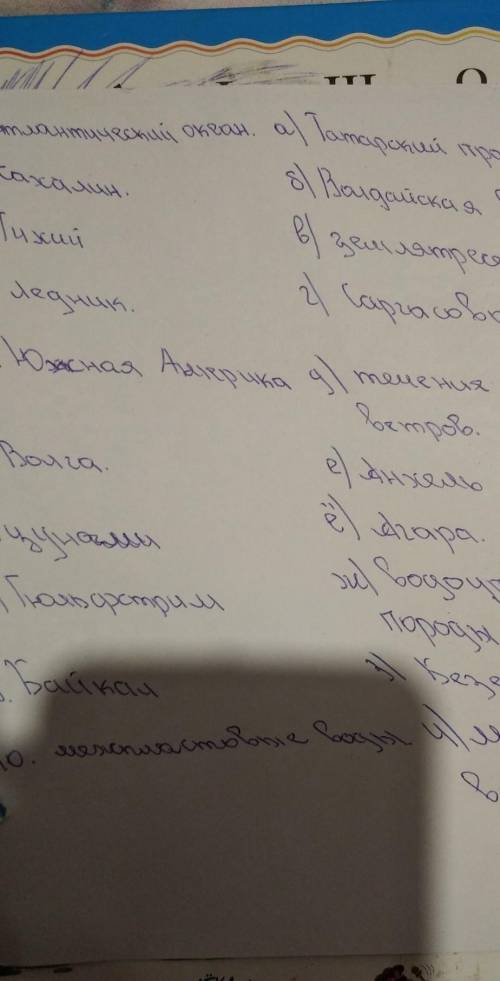 тлантический океан. а) Татарский про
Сахалин. б) Валдайская
Тихий в) землятресе
ледник. г) Саргасово
Южная Америка д) течения
ветров.
Волга. е) Анхель
цунами ё) Агара.
Гольфстрим ж) водоуп
породы
Байкал з) Безе
10. межпластовые воды и) м
в